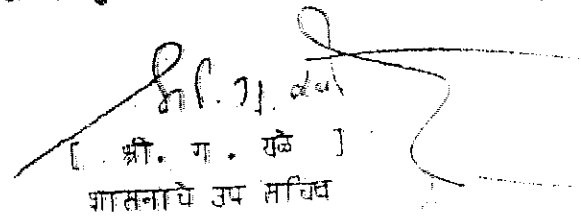 [ श्री. ग. येळे ]
शासनाचे उप सचिव